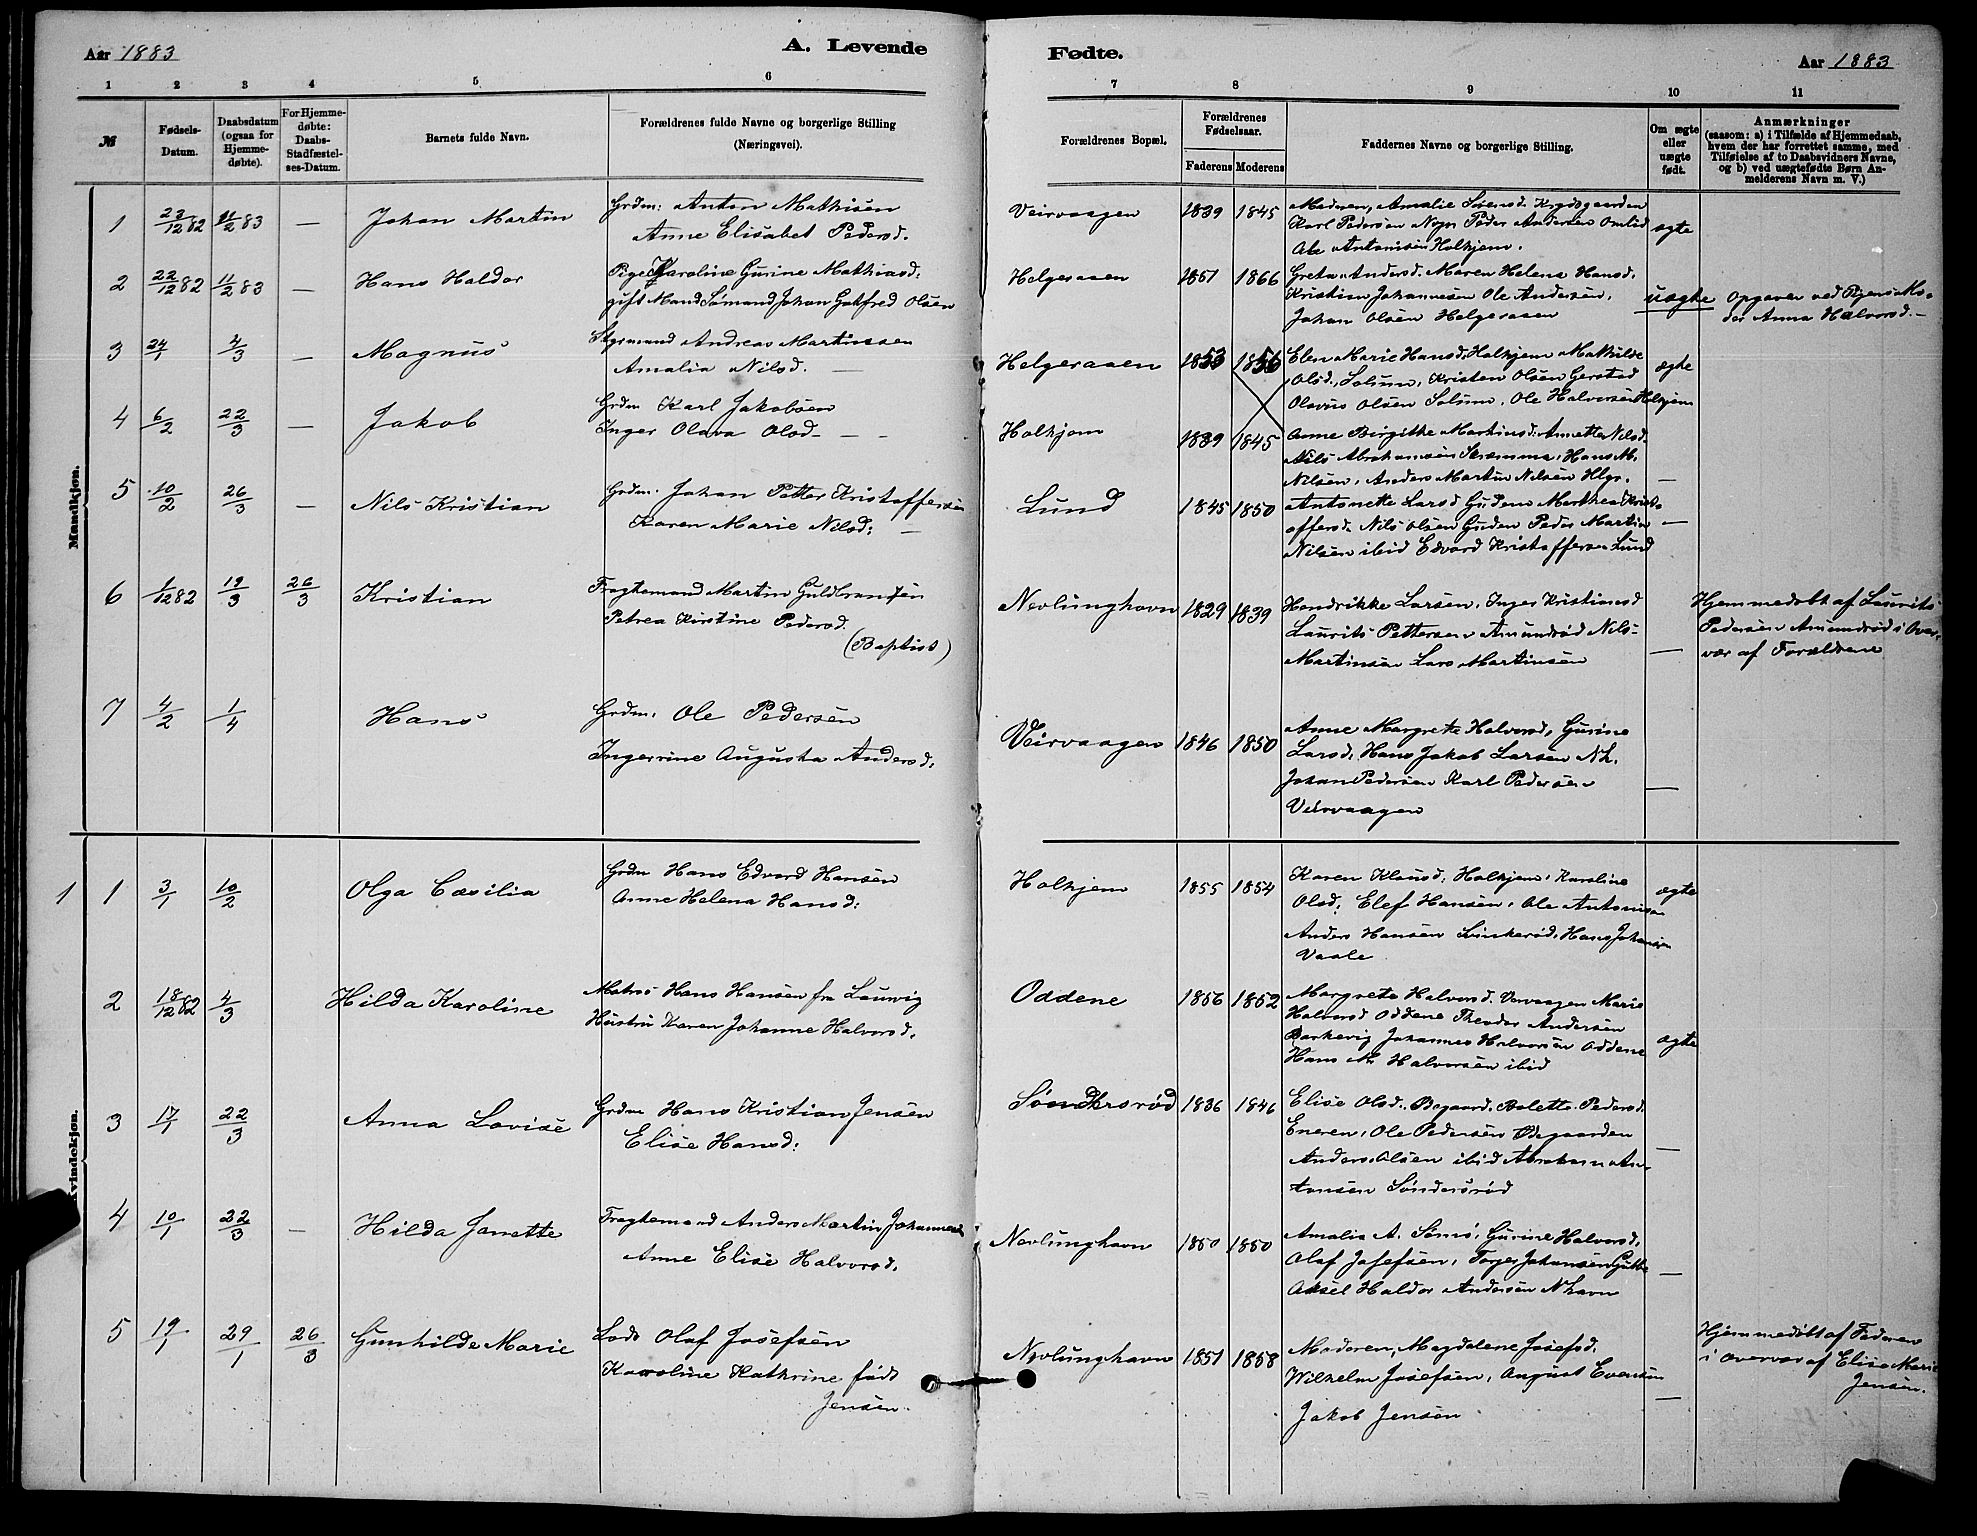 Aar 1883
A. Levende
1 2 3 4 5 6
№
Fødsels-Datum.
Daabsdatum (ogsaa for Hjemmedøbte).
For Hjemmedøbte: Daabs-Stadfæstelses-Datum.
Barnets fulde Navn.
Forældrenes fulde Navne og borgerlige Stilling (Næringsvei).
Fødte.
Aar 1883
7 8 9 10 11
Forældrenes Bopæl.
Forældrenes Fødselsaar.
Faderens Moderens
Faddernes Navne og borgerlige Stilling.
Om ægte eller uægte født.
Anmærkninger
(saasom: a) i Tilfælde af Hjemmedaab, hvem der har forrettet samme, med Tilføielse af to Daabsvidners Navne, og b) ved uægtefødte Børn Anmelderens Navn m. V.)
Mandkjøn.
1 23/12 82 11/2 83 — Johan Martin
Grdm: Anton Mathisen
Anne Elisabet Pedersd.
Veirvaagen 1839 1845
Moderen, Amalie Sørensd.
Karl Pedersen Peder Andersen Omlid
Ole Antonisen Holkjem.
ægte
2 22/12 82 11/2 83 — Hans Haldor
Pige Karoline Gurine Mathiasd:
gift Mand Sømand Johan Gotfred Olsen
Helgeraaen 1851 1866
Grete Andersd. Maren Helena Hansd.
Kristian Johannesen Ole Andersen,
Johan Olsen Helgeraaen
uægte
Opgaven ved Pigens Mo-
der Anna Halvorsd. —
3 24/1 4/3 — Magnus
Styrmand Andreas Martinsen
Amalia Nilsd. —
Helgeraaen 1853 1856
Elen Marie Hansd, Holkjem Mathilde
Olsd., Solum, Kristen Olsen Gerstad
Olavus Olsen Solum, Ole Halvorsen Holkjem
ægte
4 6/2 22/3 — Jakob
Grdm Karl Jakobsen
Inger Olava Olsd — —
Holkjem 1839 1845
Anne Birgitte Martinsd: Annette Nilsd.
Nils Abrahamsen Hans M.
Nilsen, Anders Martin Nilsen Hlgr.
—
5 10/2 26/3 — Nils Kristian
Grdm. Johan Petter Kristoffersen
Karen Marie Nilsd: —
Lund 1845 1850
Antonette Larsd Guden Marthea Krist-
offersd. Nils Olsen Guden Peder Martin
Nilsen ibid Edvard Kristoffersen Lund
—
6 1/12 82 19/3 26/3 Kristian
Fragtemand Martin Guldbrandsen
Petrea Kirstine Pedersd.
(Baptist)
Nevlunghavn 1829 1839
Hendrikke Larsen, Inger Kristiansd
Laurits Pettersen Amundrød Nils
Martinsen Lars Martinsen
—
Hjemmedøbt af Laurits
Pedersen Amundrød i Over-
vær af Forældrene
7 4/2 1/4 Hans
Grdm. Ole Pedersen
Ingerrine Augusta Andersd.
Veirvaagen 1846 1850
Anne Margrete Halvorsd, Gurine
Larsd, Hans Jakob Larsen Nh.
Johan Pedersen Karl Pedersen
Veirvaagen
—
Kvindekjøn.
1 1 3/1 10/2 Olga Cæsilia
Grdm Hans Edvard Hansen
Anne Helena Hansd:
Holkjem 1855 1854
Karen Klausd, Holkjem, Karoline
Olsd: Elef Hansen, Ole Antonisen
Anders Hansen Hans Johansen
Vaale
ægte
2 18/12 82 4/3 Hilda Karoline
Matros Hans Hansen fra Laurvig
Hustru Karen Johanne Halvorsd.
Oddene 1856 1852
Margrete Halvorsd. Vervaagen Marie
Halvorsd Oddene Theodor Andersen
Barkevig Johannes Halvorsen Oddene
Hans M. Halvorsen ibid
ægte
3 17/1 22/3 Anna Lovise
Grdm Hans Kristian Jensen
Elise Hansd:
Søndersrød 1836 1846
Elise Olsd. Bøgaard. Bolette Pedersd.
Eneren, Ole Pedersen Bøgaarden
Anders Olsen ibid Abraham An-
tonsen Søndersrød
—
4 10/1 22/3 — Hilda Janette
Fragtemand Anders Martin Johannesen
Anne Elise Halvorsd.
Nevlunghavn 1850 1850
Amalia A. Semo, Gurine Halvorsd,
Olaf Josefsen, Torger Johansen
Aksel Haldor Andersen Nhavn
—
5 19/1 29/1 26/3 Gunhilde Marie
Lods Olaf Josefsen
Karoline Kathrine født
Jensen.
Nevlunghavn 1851 1858
Moderen, Magdalene Josefsd.
Wilhelm Josefsen, August Evensen
Jakob Jensen
—
Hjemmedøbt af Faderen
i Overvær af Elise Marie
Jensen.